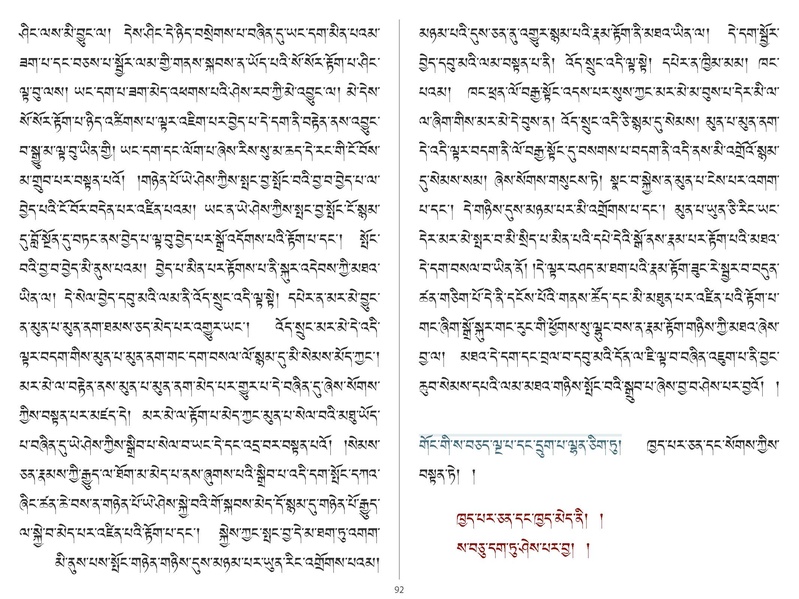 ཤིང་ལས་མི་བྱུང་ལ། དེས་ཤིང་དེ་ཉིད་བསྲེགས་པ་བཞིན་དུ་ཡང་དག་མིན་པའམ་
ཟག་པ་དང་བཅས་པ་སྦྱོར་ལམ་གྱི་གནས་སྐབས་ན་ཡོད་པའི་སོ་སོར་རྟོག་པ་ཤིང་
ལྟ་བུ་ལས། ཡང་དག་པ་ཟག་མེད་འཕགས་པའི་ཤེས་རབ་ཀྱི་མེ་འབྱུང་ལ། མེ་དེས་
སོ་སོར་རྟོག་པ་ཉིད་འཚིགས་པ་ལྟར་འཇིག་པར་བྱེད་པ་དེ་དག་ནི་བརྟེན་ནས་འབྱུང་
བ་སྒྱུ་མ་ལྟ་བུ་ཡིན་གྱི། ཡང་དག་དང་ལོག་པ་ཞེས་རིས་སུ་མ་ཆད་དེ་རང་གི་ངོ་བོས་
མ་གྲུབ་པར་བསྟན་པའོ། །གཉེན་པོ་ཡེ་ཤེས་ཀྱིས་སྤང་བྱ་སྤོང་བའི་བྱ་བ་བྱེད་པ་ལ་
བྱེད་པའི་ངོ་བོར་བདེན་པར་འཛིན་པའམ། ཡང་ན་ཡེ་ཤེས་ཀྱིས་སྤང་བྱ་སྤོང་ངོ་སྙམ་
དུ་བློ་སྔོན་དུ་བཏང་ནས་བྱེད་པ་ལྟ་བུ་བྱེད་པར་སྒྲོ་འདོགས་པའི་རྟོག་པ་དང་། སྤོང་
བའི་བྱ་བ་བྱེད་མི་ནུས་པའམ། བྱེད་པ་མིན་པར་རྟོགས་པ་ནི་སྐུར་འདེབས་ཀྱི་མཐའ་
ཡིན་ལ། དེ་སེལ་བྱེད་དབུ་མའི་ལམ་ནི་འོད་སྲུང་འདི་ལྟ་སྟེ། དཔེར་ན་མར་མེ་བྱུང་
ན་མུན་པ་མུན་ནག་ཐམས་ཅད་མེད་པར་འགྱུར་ཡང་། འོད་སྲུང་མར་མེ་དེ་འདི་
ལྟར་བདག་གིས་མུན་པ་མུན་ནག་གང་དག་བསལ་ལོ་སྙམ་དུ་མི་སེམས་མོད་ཀྱང་།
མར་མེ་ལ་བརྟེན་ནས་མུན་པ་མུན་ནག་མེད་པར་གྱུར་པ་དེ་བཞིན་དུ་ཞེས་སོགས་
ཀྱིས་བསྟན་པར་མཛད་དེ། མར་མེ་ལ་རྟོག་པ་མེད་ཀྱང་མུན་པ་སེལ་བའི་མཐུ་ཡོད་
པ་བཞིན་དུ་ཡེ་ཤེས་ཀྱིས་སྒྲིབ་པ་སེལ་བ་ཡང་དེ་དང་འདྲ་བར་བསྟན་པའོ། །སེམས་
ཅན་རྣམས་ཀྱི་རྒྱུད་ལ་ཐོག་མ་མེད་པ་ནས་ཞུགས་པའི་སྒྲིབ་པ་འདི་དག་སྤོང་དཀའ་
ཞིང་ཚན་ཆེ་བས་ན་གཉེན་པོ་ཡེ་ཤེས་སྐྱེ་བའི་གོ་སྐབས་མེད་དོ་སྙམ་དུ་གཉེན་པོ་རྒྱུད་
ལ་སྐྱེ་བ་མེད་པར་འཛིན་པའི་རྟོག་པ་དང་། སྐྱེས་ཀྱང་སྤང་བྱ་དེ་མ་ཐག་ཏུ་འགག་
མི་ནུས་པས་སྤོང་གཉེན་གཉིས་དུས་མཉམ་པར་ཡུན་རིང་འགྲོགས་པའམ།
མཉམ་པའི་དུས་ཅན་དུ་འགྱུར་སྙམ་པའི་རྣམ་རྟོག་ནི་མཐའ་ཡིན་ལ། དེ་དག་སྦྱོར་
བྱེད་དབུ་མའི་ལམ་བསྟན་པ་ནི། འོད་སྲུང་འདི་ལྟ་སྟེ། དཔེར་ན་ཁྱིམ་མམ། ཁང་
པའམ། ཁང་ཕྲན་ལོ་བརྒྱ་སྟོང་འདས་པར་སུས་ཀྱང་མར་མེ་མ་བུས་པ་དེར་མི་ལ་
ལ་ཞིག་གིས་མར་མེ་དེ་བུས་ན། འོད་སྲུང་འདི་ཅི་སྙམ་དུ་སེམས། མུན་པ་མུན་ནག་
དེ་འདི་ལྟར་བདག་ནི་ལོ་བརྒྱ་སྟོང་དུ་བསགས་པ་བདག་ནི་འདི་ནས་མི་འགྲོའོ་སྙམ་
དུ་སེམས་སམ། ཞེས་སོགས་གསུངས་ཏེ། སྣང་བ་སྐྱེས་ན་མུན་པ་ངེས་པར་འགག་
པ་དང་། དེ་གཉིས་དུས་མཉམ་པར་མི་འགྲོགས་པ་དང་། མུན་པ་ཡུན་ཅི་རིང་ཡང་
དེར་མར་མེ་སྤར་བ་མི་སྲིད་པ་མིན་པའི་དཔེ་དེའི་སྒོ་ནས་རྣམ་པར་རྟོག་པའི་མཐའ་
དེ་དག་བསལ་བ་ཡིན་ནོ། །དེ་ལྟར་བཤད་མ་ཐག་པའི་རྣམ་རྟོག་ཟུང་རེ་སྦྱར་བ་བདུན་
ཚན་གཅིག་པོ་དེ་ནི་དངོས་པོའི་གནས་ཚོད་དང་མི་མཐུན་པར་འཛིན་པའི་རྟོག་པ་
གང་ཞིག་སྒྲོ་སྐུར་གང་རུང་གི་ཕྱོགས་སུ་ལྷུང་བས་ན་རྣམ་རྟོག་གཉིས་ཀྱི་མཐའ་ཞེས་
བྱ་ལ། མཐའ་དེ་དག་དང་བྲལ་བ་དབུ་མའི་དོན་ལ་ཇི་ལྟ་བ་བཞིན་འཇུག་པ་ནི་བྱང་
ཆུབ་སེམས་དཔའི་ལམ་མཐའ་གཉིས་སྤོང་བའི་སྒྲུབ་པ་ཞེས་བྱ་བ་ཤེས་པར་བྱའོ། །
གོང་གི་ས་བཅད་ལྔ་པ་དང་དྲུག་པ་ལྷན་ཅིག་ཏུ། ཁྱད་པར་ཅན་དང་སོགས་ཀྱིས་
བསྟན་ཏེ། །
ཁྱད་པར་ཅན་དང་ཁྱད་མེད་ནི། །
ས་བཅུ་དག་ཏུ་ཤེས་པར་བྱ། །
92